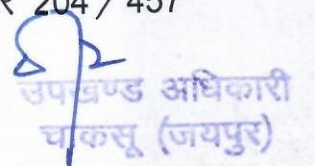 204 / 457
उपखण्ड अधिकारी
चाकसू (जयपुर)